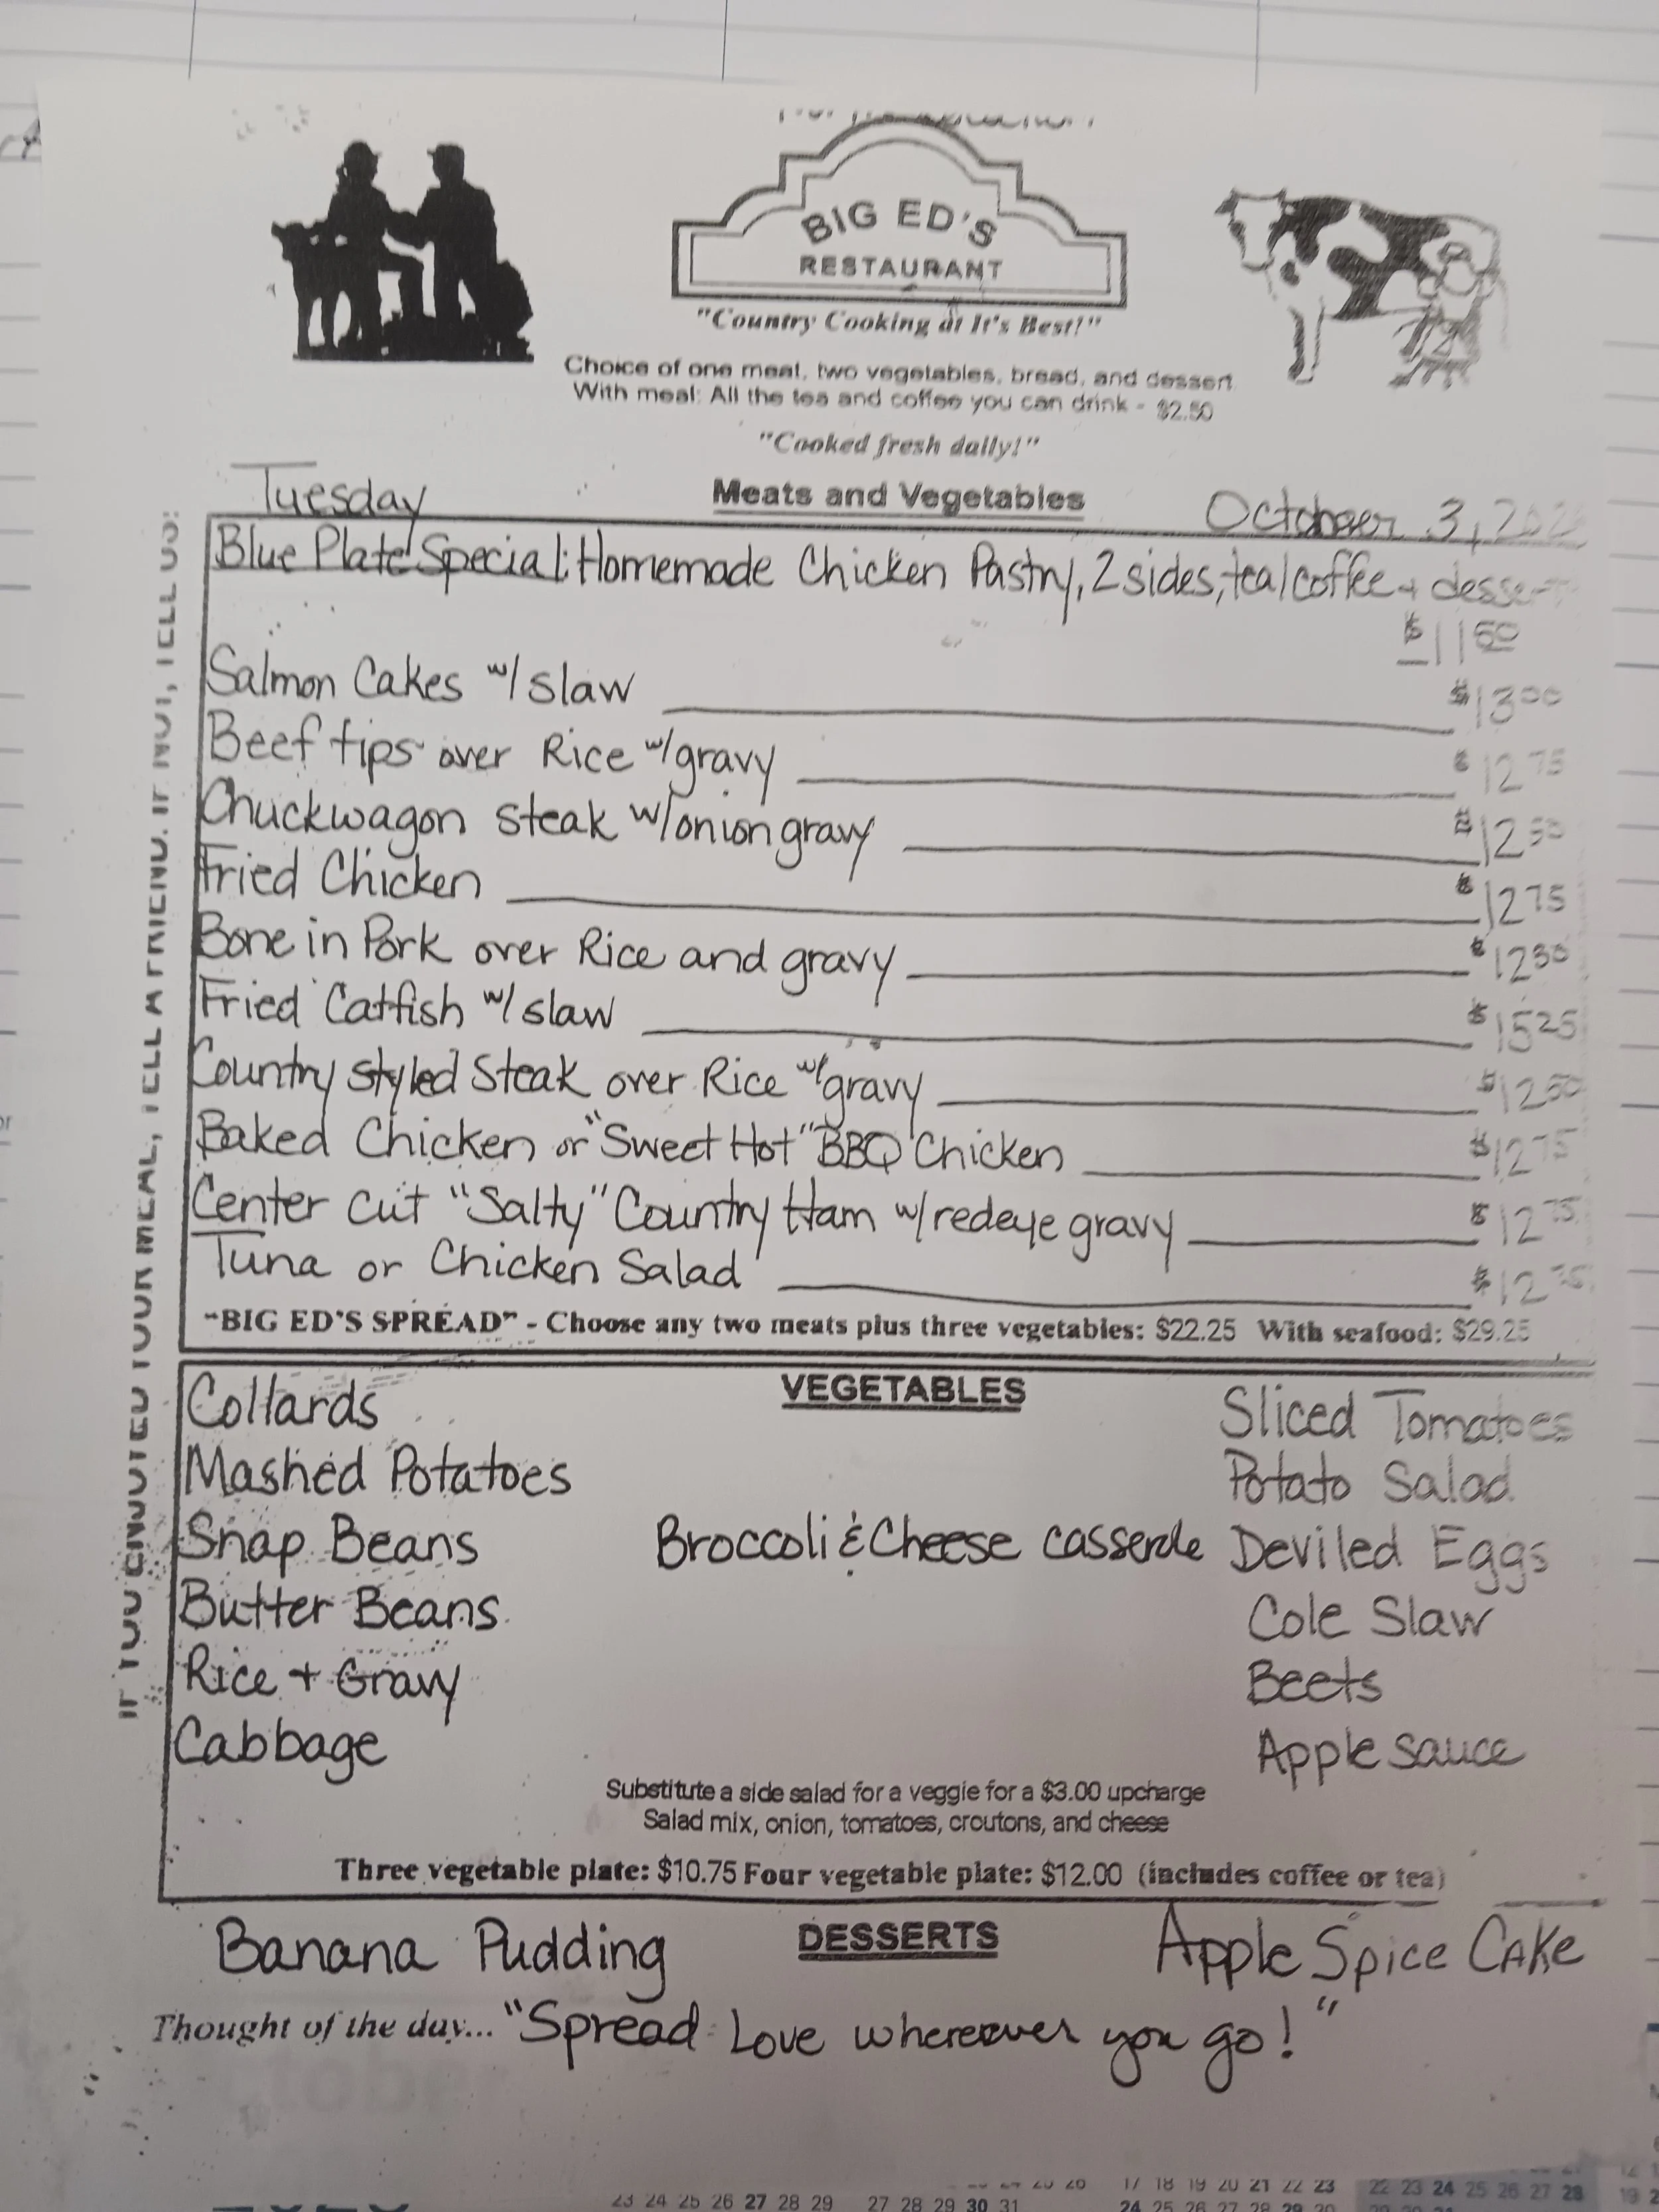 BIG ED'S
RESTAURANT
"Country Cooking at It's Best!"
Choice of one meat, two vegetables, bread, and dessert
With meal: All the tea and coffee you can drink - $2.50
"Cooked fresh daily!"
Tuesday Meats and Vegetables October 3,
Blue Plate Special: Homemade Chicken Pastry, 2 sides, tea/coffee + dessert
$11.50
Salmon Cakes w/ slaw $13.00
Beef tips over Rice w/ gravy $12.75
Chuckwagon steak w/ onion gravy $12.50
Fried Chicken $12.75
Bone in Pork over Rice and gravy $12.50
Fried Catfish w/ slaw $15.25
Country styled Steak over Rice w/ gravy $12.50
Baked Chicken or "Sweet Hot" BBQ Chicken $12.75
Center cut "Salty" Country Ham w/ redeye gravy $12.75
Tuna or Chicken Salad
"BIG ED'S SPREAD" - Choose any two meats plus three vegetables: $22.25 With seafood: $29.25
VEGETABLES
Collards Sliced Tomatoes
Mashed Potatoes Potato Salad
Snap Beans Broccoli & Cheese casserole Deviled Eggs
Butter Beans Cole Slaw
Rice + Gravy Beets
Cabbage Apple sauce
Substitute a side salad for a veggie for a $3.00 upcharge
Salad mix, onion, tomatoes, croutons, and cheese
Three vegetable plate: $10.75 Four vegetable plate: $12.00 (includes coffee or tea)
Banana Pudding DESSERTS Apple Spice CAKe
Thought of the day... "Spread Love whereever you go!"
IF YOU ENJOYED YOUR MEAL, TELL A FRIEND. IF NOT, TELL US!
23 24 25 26 27 28 29 27 28 29 30 31
17 18 19 20 21 22 23
22 23 24 25 26 27 28